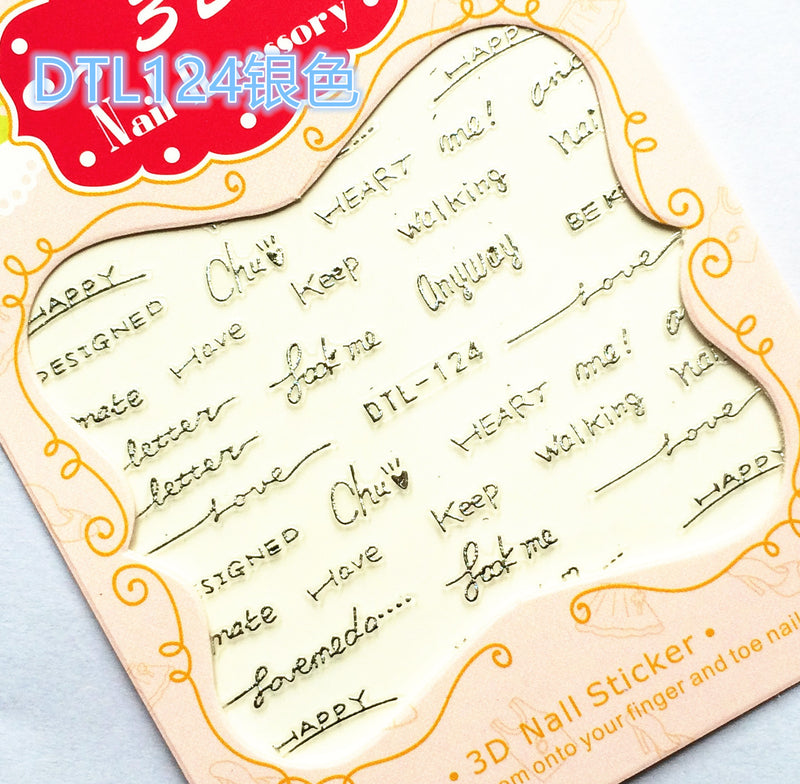 3D
DTL124银色
Nail Accessory
HAPPY
HEART me! and
walking nail
HAPPY Chu Keep Anyway BE K
DESIGNED Have look me Love
mate DTL-124 me!
letter HEART walking nai
letter Love
Love Chu Keep HAPPY
SIGNED Have look me
mate
Lovemedo....
HAPPY
• 3D Nall Sticker •
om onto your finger and toe nail